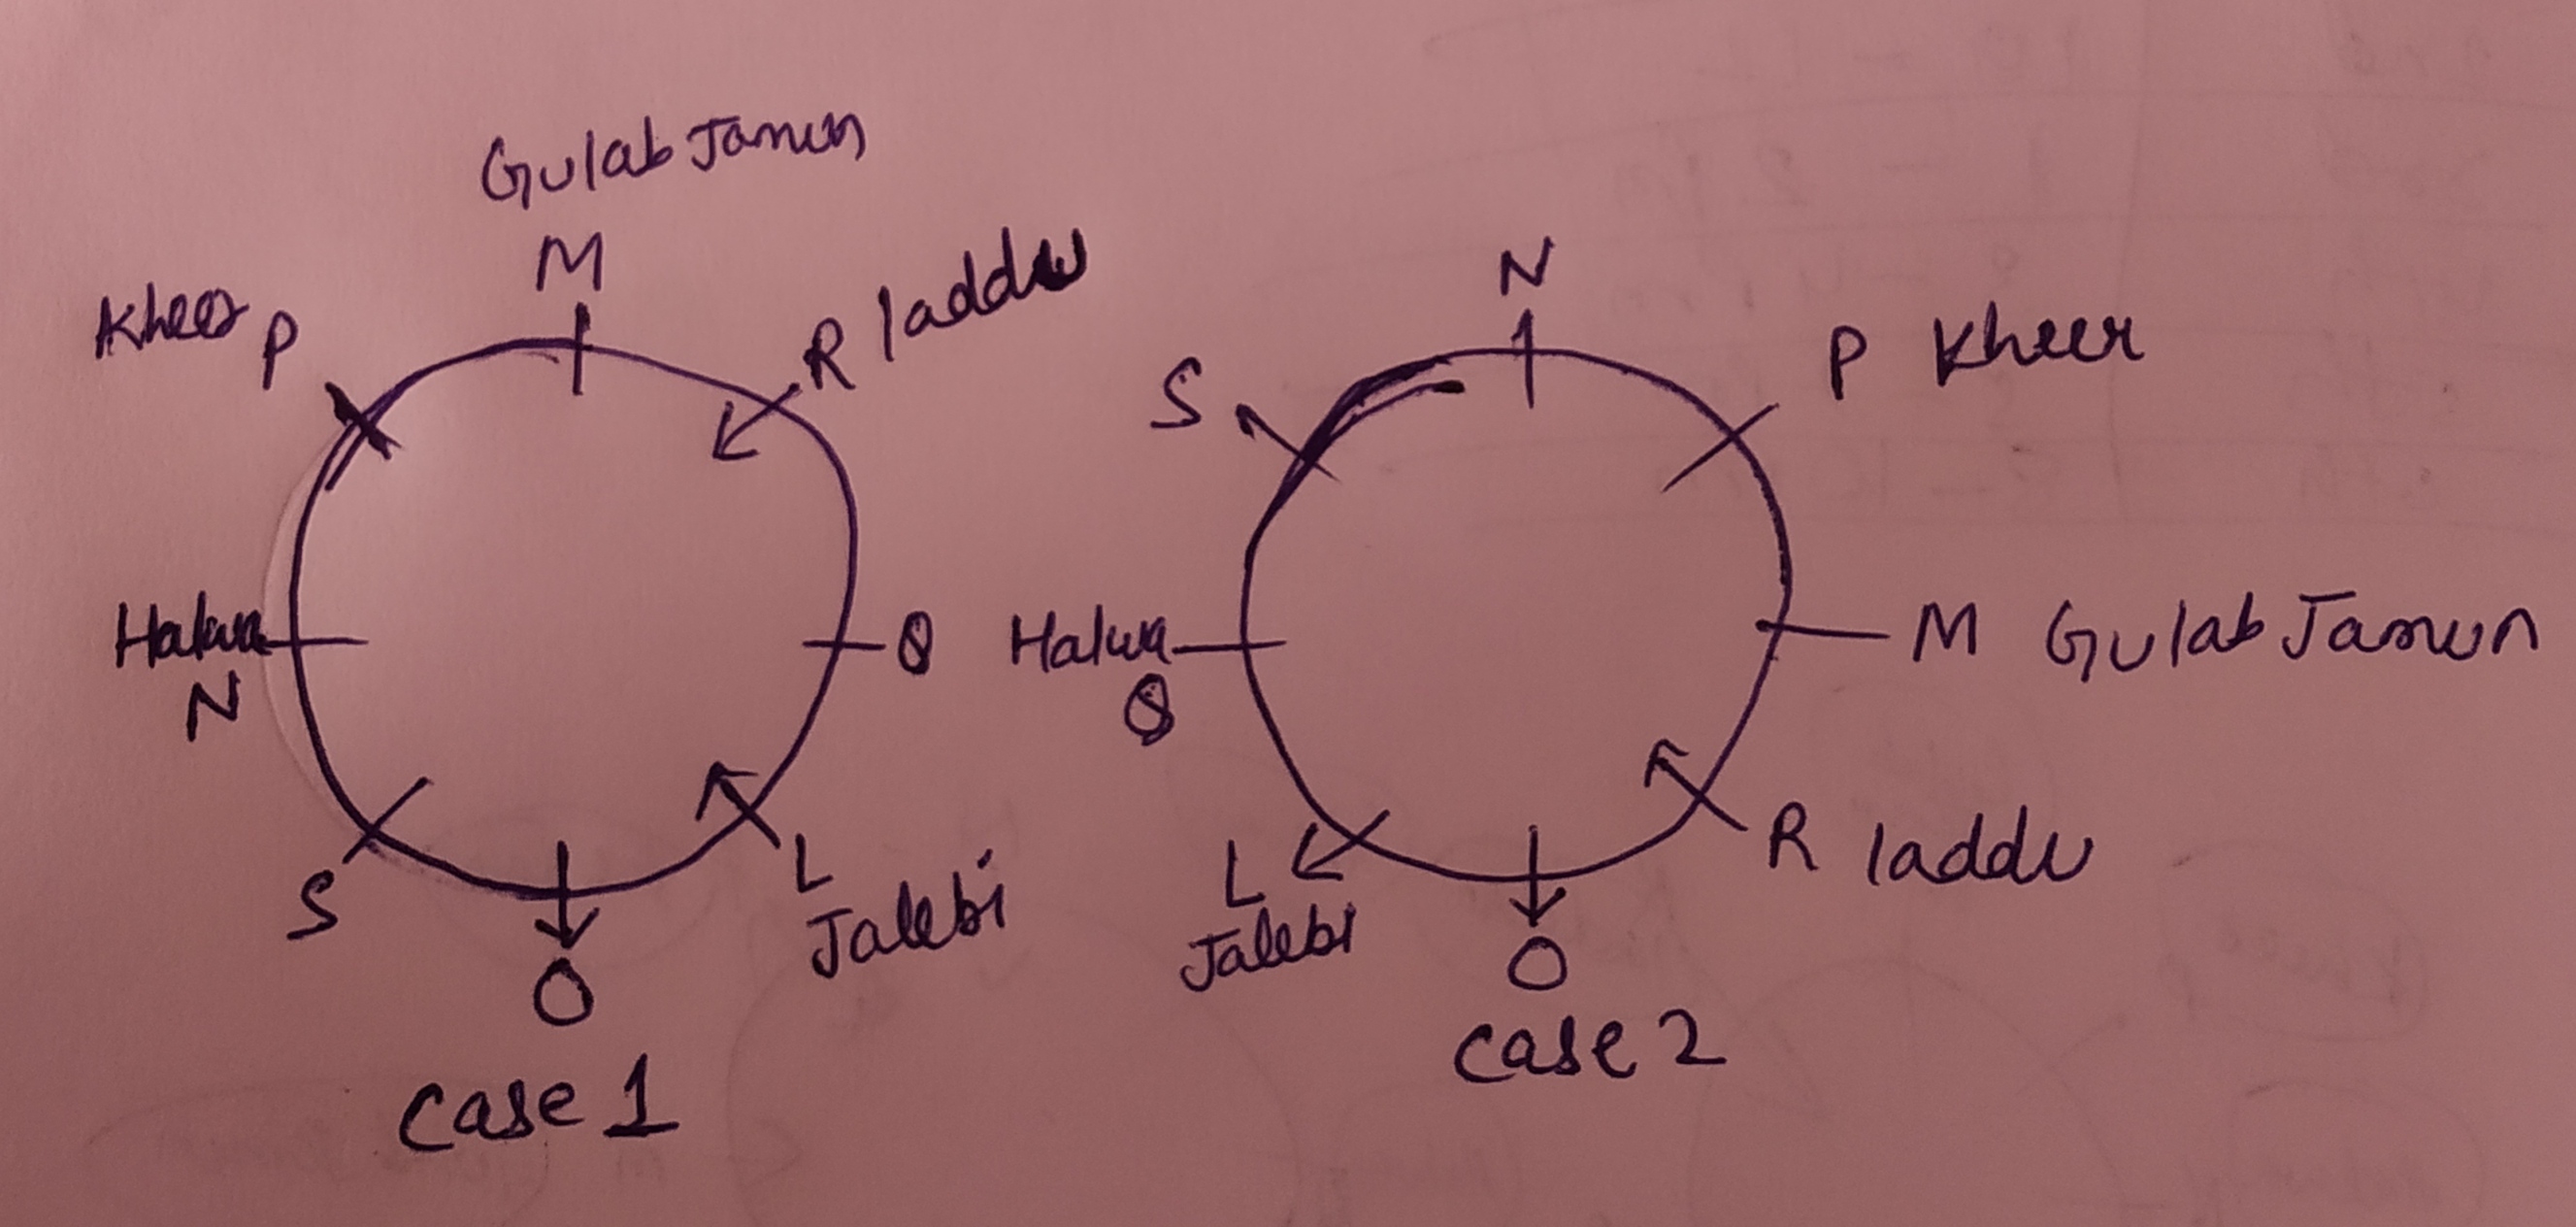 Gulab Jamun
M
Kheer P
R laddu
Halwa
N
Q
S
L
Jalebi
O
Case 1
N
S
P Kheer
Halwa
Q
M Gulab Jamun
L
Jalebi
R laddu
O
Case 2